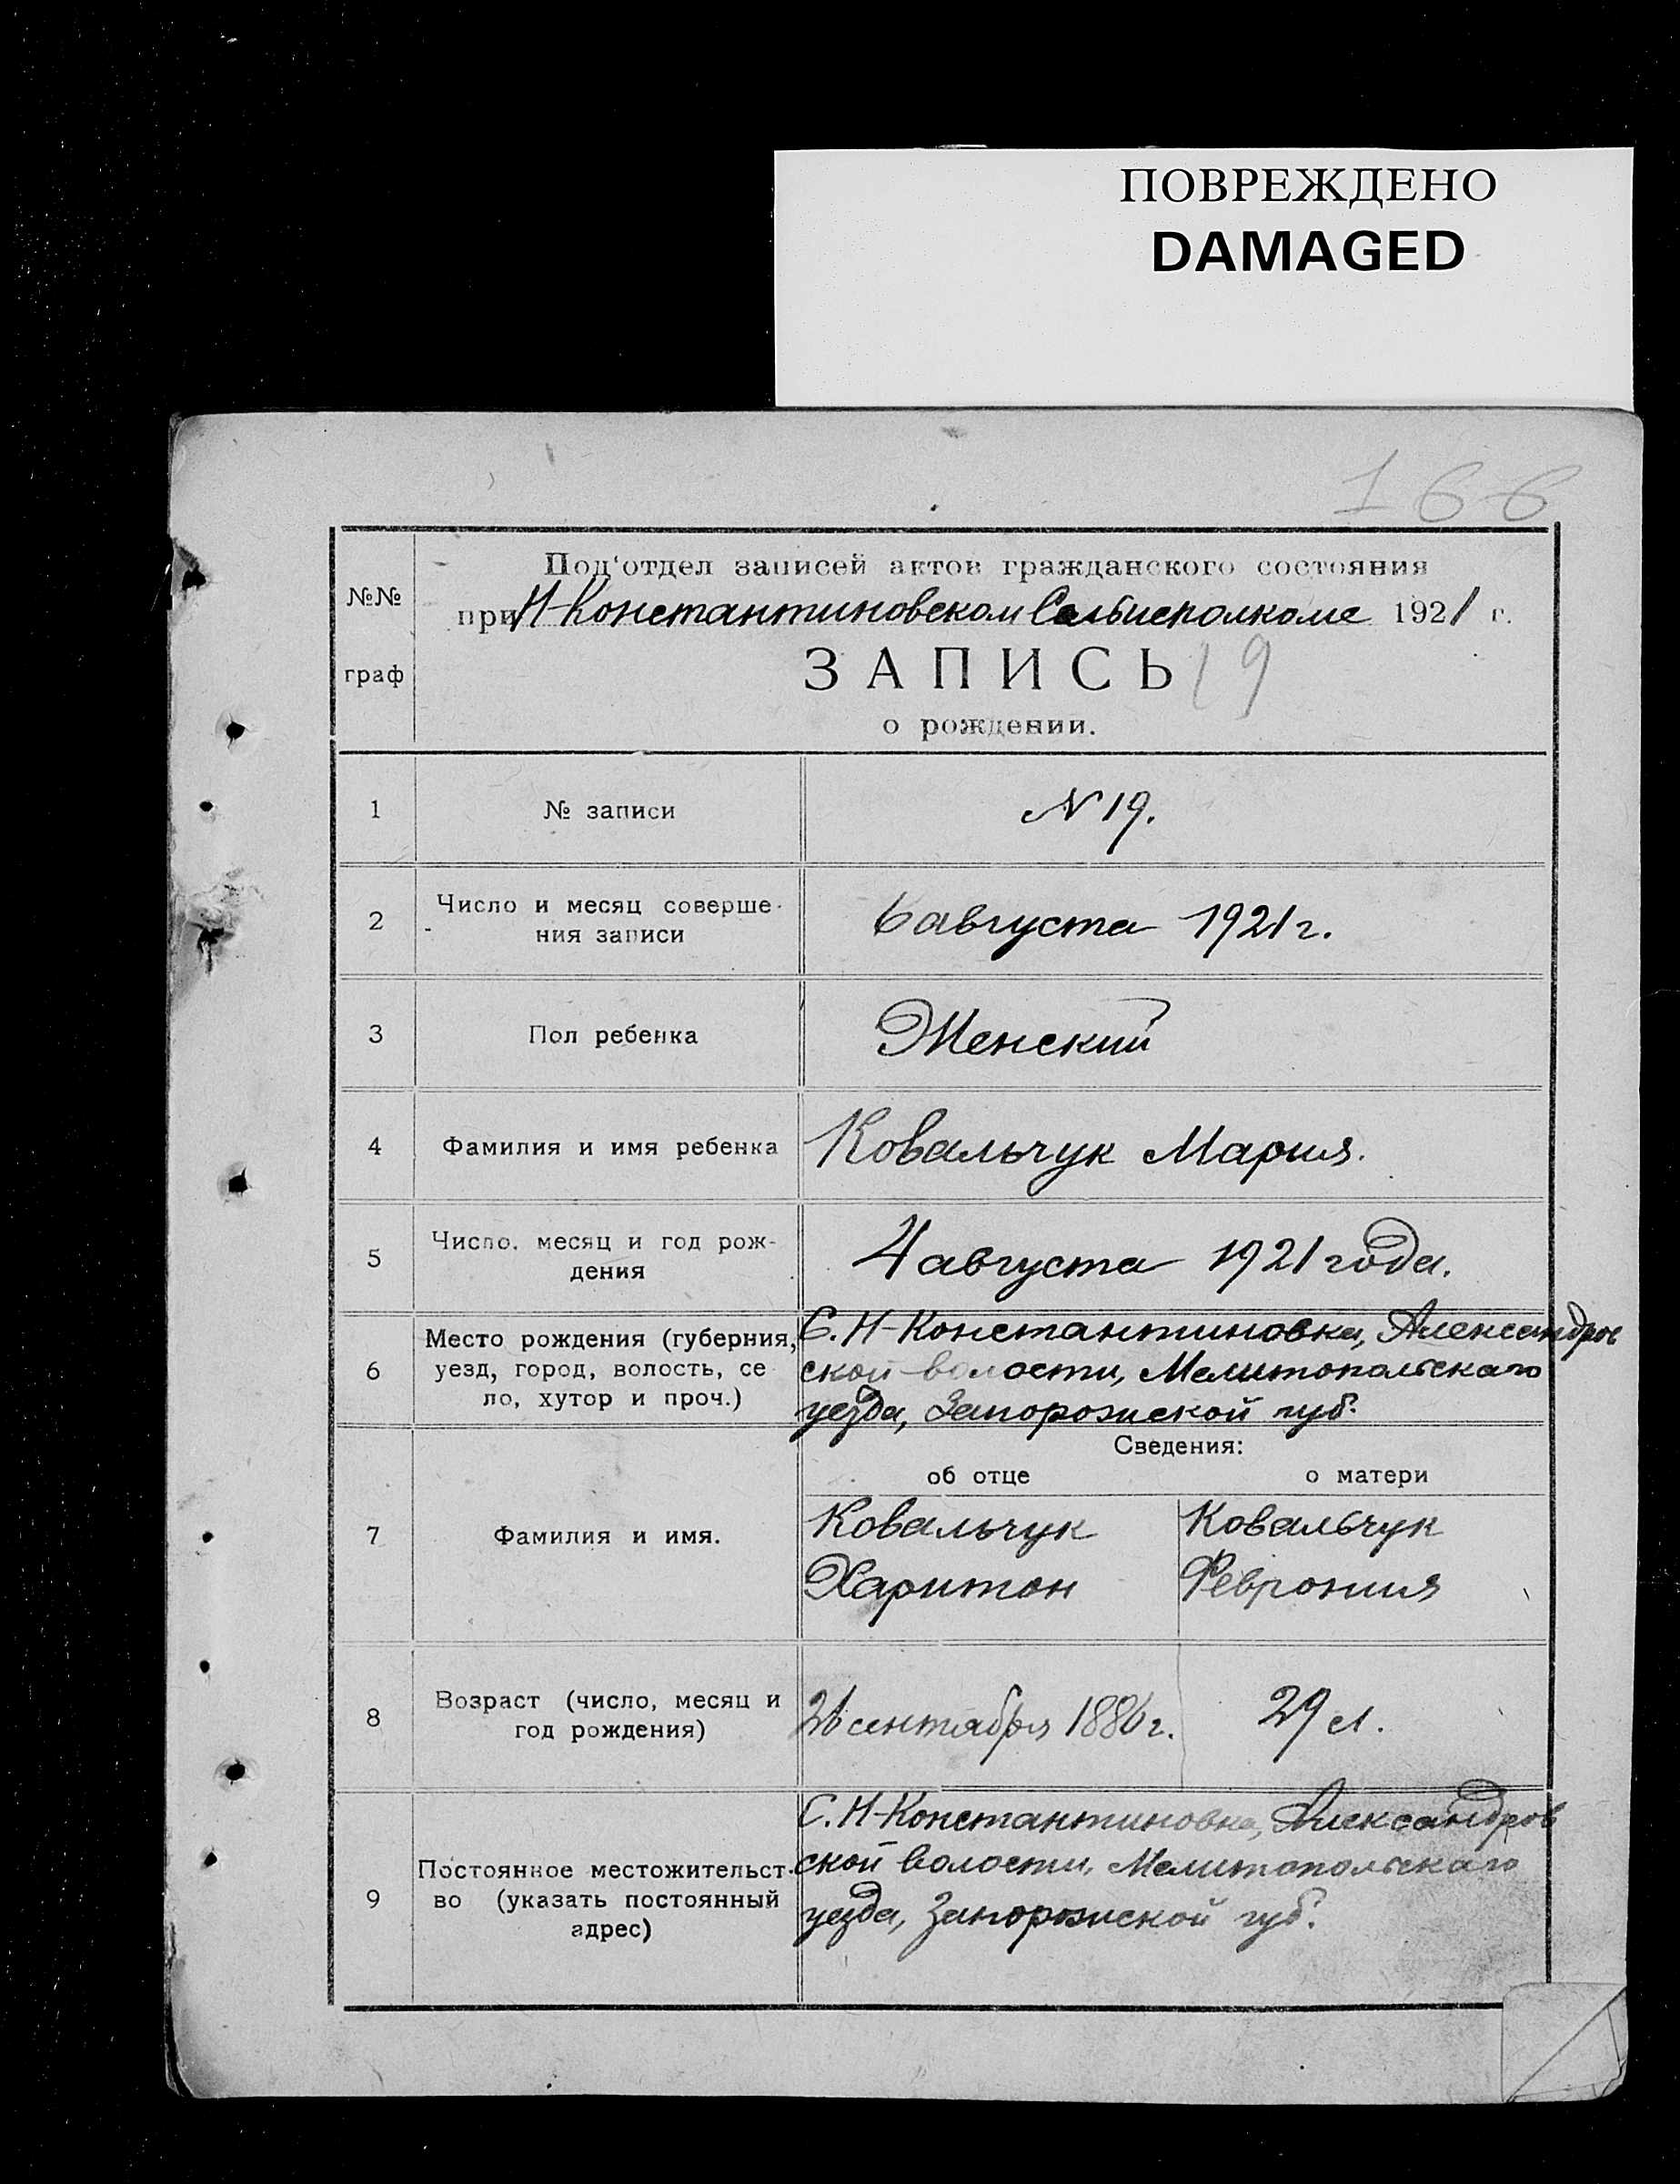 ПОВРЕЖДЕНО
DAMAGED
166
№№ граф
Под'отдел записей актов гражданского состояния
при Н-Константиновском Сельисполкоме 1921 г.
ЗАПИСЬ 19
о рождении.
1
№ записи
N 19.
2
Число и месяц соверше-
ния записи
6 августа 1921 г.
3
Пол ребенка
Женский
4
Фамилия и имя ребенка
Ковальчук Мария.
5
Число, месяц и год рож-
дения
4 августа 1921 года.
6
Место рождения (губерния,
уезд, город, волость, се
ло, хутор и проч.)
С. Н-Константиновка, Александров
ской волости, Мелитопольскаго
уезда, Запорожской губ.
Сведения:
об отце
о матери
7
Фамилия и имя.
Ковальчук
Харитон
Ковальчук
Феврония
8
Возраст (число, месяц и
год рождения)
26 сентября 1886 г.
29 л.
9
Постоянное местожительст-
во (указать постоянный
адрес)
С. Н-Константиновка, Александров
ской волости, Мелитопольскаго
уезда, Запорожской губ.